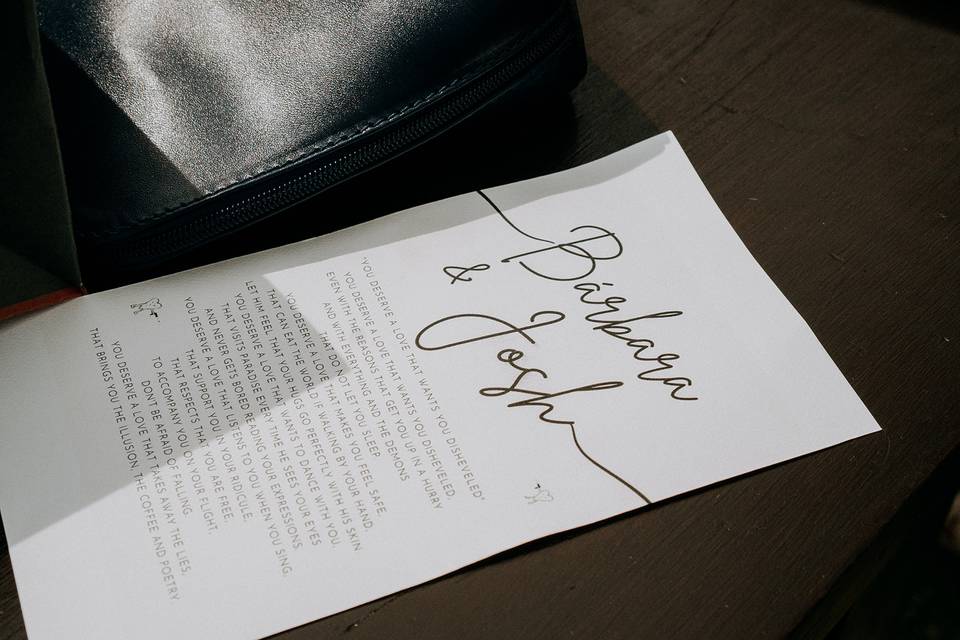 Bárbara
&
Josh
"YOU DESERVE A LOVE THAT WANTS YOU DISHEVELED"
YOU DESERVE A LOVE THAT WANTS YOU DISHEVELED,
EVEN WITH THE REASONS THAT GET YOU UP IN A HURRY
AND WITH EVERYTHING AND THE DEMONS
THAT DO NOT LET YOU SLEEP.
YOU DESERVE A LOVE THAT MAKES YOU FEEL SAFE,
THAT CAN EAT THE WORLD IF WALKING BY YOUR HAND,
LET HIM FEEL THAT YOUR HUGS GO PERFECTLY WITH HIS SKIN.
YOU DESERVE A LOVE THAT WANTS TO DANCE WITH YOU,
THAT VISITS PARADISE EVERY TIME HE SEES YOUR EYES
AND NEVER GETS BORED READING YOUR EXPRESSIONS.
YOU DESERVE A LOVE THAT LISTENS TO YOU WHEN YOU SING,
THAT SUPPORT YOU IN YOUR RIDICULE,
THAT RESPECTS THAT YOU ARE FREE,
TO ACCOMPANY YOU ON YOUR FLIGHT,
DON'T BE AFRAID OF FALLING.
YOU DESERVE A LOVE THAT TAKES AWAY THE LIES,
THAT BRINGS YOU THE ILLUSION, THE COFFEE AND POETRY